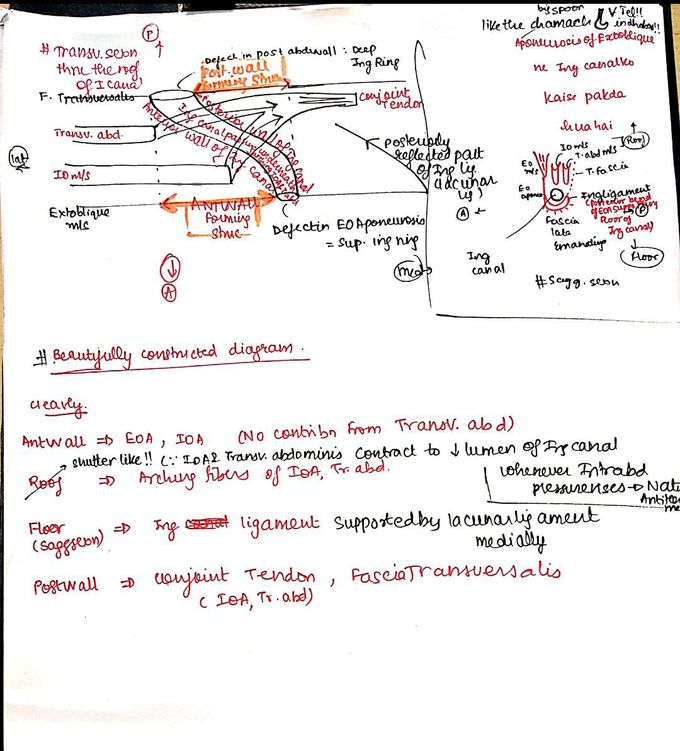 # Transv. secn
thru the roof
of I canal
P
Defect in post abdwall : Deep
Ing Ring
Post. wall
forming struc
F. Transversalis
Conjoint
Tendon
Transv. abd.
lat
IO m/s
Anterior wall of Ing canal
ANT WALL
forming
struc
Ext oblique
m/s
Defect in EO Aponeurosis
= Sup. ing ring
A
Posteriorly
reflected part
of Ing lig
(lacunar
lig)
A
med
Ing
canal
by spoon
like the chamach
V Tel!!
Aponeurosis of Ext oblique
ne Ing canal ko
kaise pakda
hua hai
(Roof)
IO m/s
T. abd m/s
T. fascia
EO
m/s
EO
aponeu
Ing ligament
Roof of
Ing canal)
Fascia
lata
P
Floor
# Sagg. secn
# Beautifully constructed diagram.
clearly.
Ant Wall ⇒ EOA, IOA (No contribn from Transv. abd)
shutter like!! (∵ IOA & Transv. abdominis contract to ↓ lumen of Ing canal
Roof ⇒ Arching fibers of IOA, Tr. abd.
whenever Intrabd
pressure rises → Nat
Floor ⇒ Ing canal ligament supported by lacunar ligament
(Sagg secn) medially
Post Wall ⇒ conjoint Tendon, Fascia Transversalis
(IOA, Tr. abd)